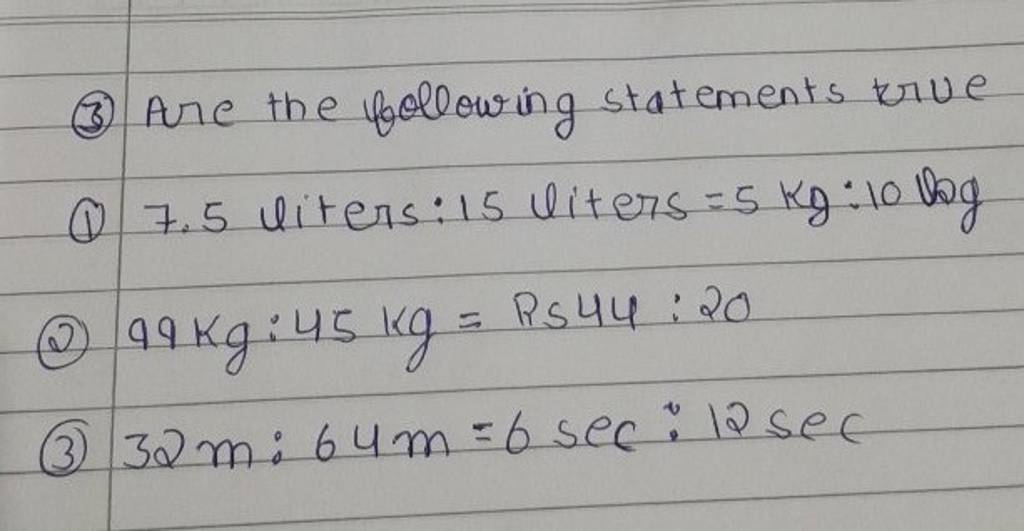 ③ Are the following statements true
① 7.5 liters : 15 liters = 5 kg : 10 kg
② 99 kg : 45 kg = Rs 44 : 20
③ 32 m : 64 m = 6 sec : 12 sec